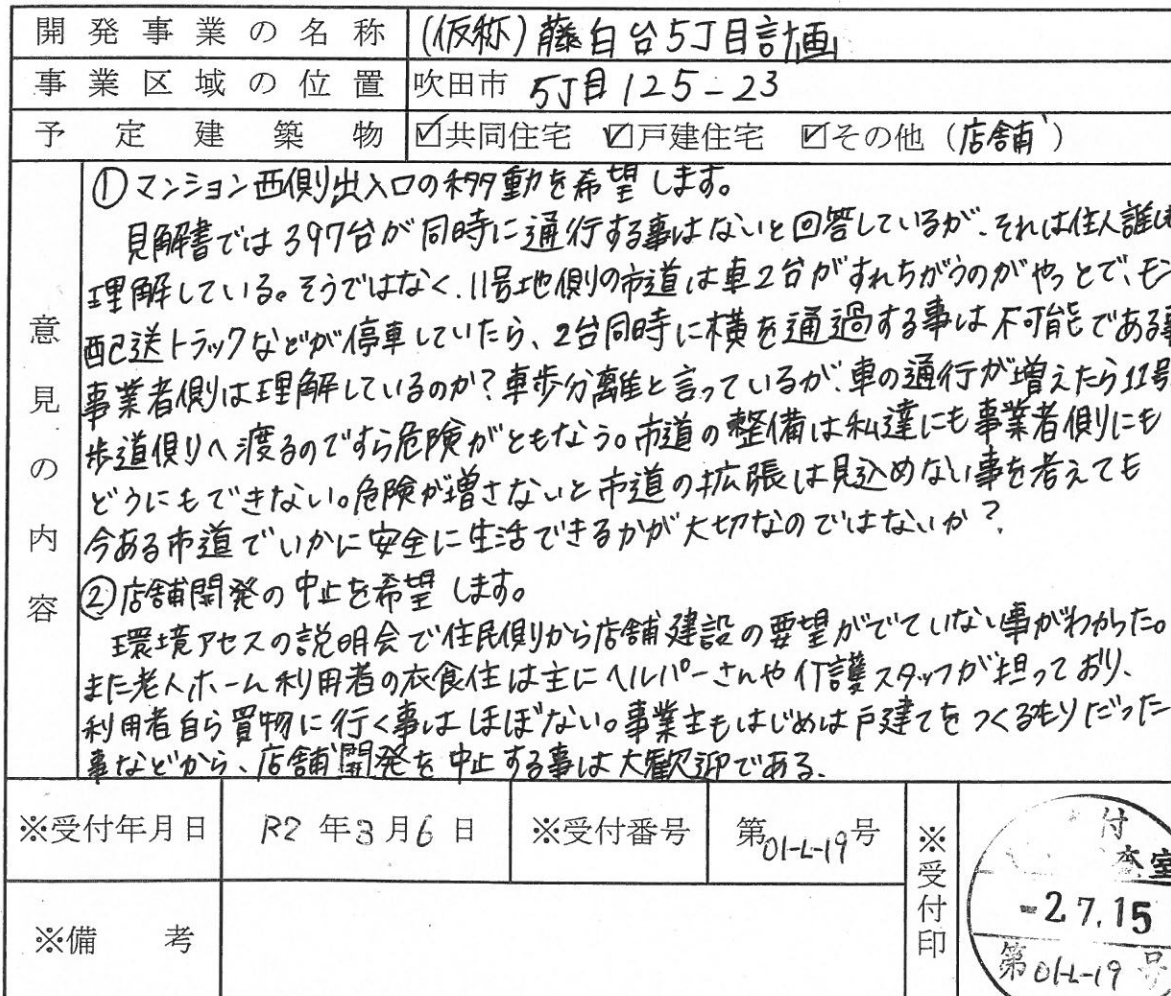 開発事業の名称 (仮称)藤白台5丁目計画
事業区域の位置 吹田市 5丁目125-23
予定建築物 ☑共同住宅 ☑戸建住宅 ☑その他(店舗)
意見の内容
①マンション西側出入口の移動を希望します。
見解書では397台が同時に通行する事はないと回答しているが、それは住人誰しも
理解している。そうではなく、11号地側の市道は車2台がすれちがうのがやっとで、もし
配送トラックなどが停車していたら、2台同時に横を通過する事は不可能である事
事業者側は理解しているのか?車歩分離と言っているが、車の通行が増えたら11号
歩道側へ渡るのですら危険がともなう。市道の整備は私達にも事業者側にも
どうにもできない。危険が増さないと市道の拡張は見込めない事を考えても
今ある市道でいかに安全に生活できるかが大切なのではないか?
②店舗開発の中止を希望します。
環境アセスの説明会で住民側から店舗建設の要望がでていない事がわかった。
また老人ホーム利用者の衣食住は主にヘルパーさんや介護スタッフが担っており、
利用者自ら買物に行く事はほぼない。事業主もはじめは戸建てをつくるつもりだった
事などから、店舗開発を中止する事は大歓迎である。
※受付年月日 R2年3月6日 ※受付番号 第01-L-19号
※受付印
付
査室
-2.7.15
第01-L-19号
※備考